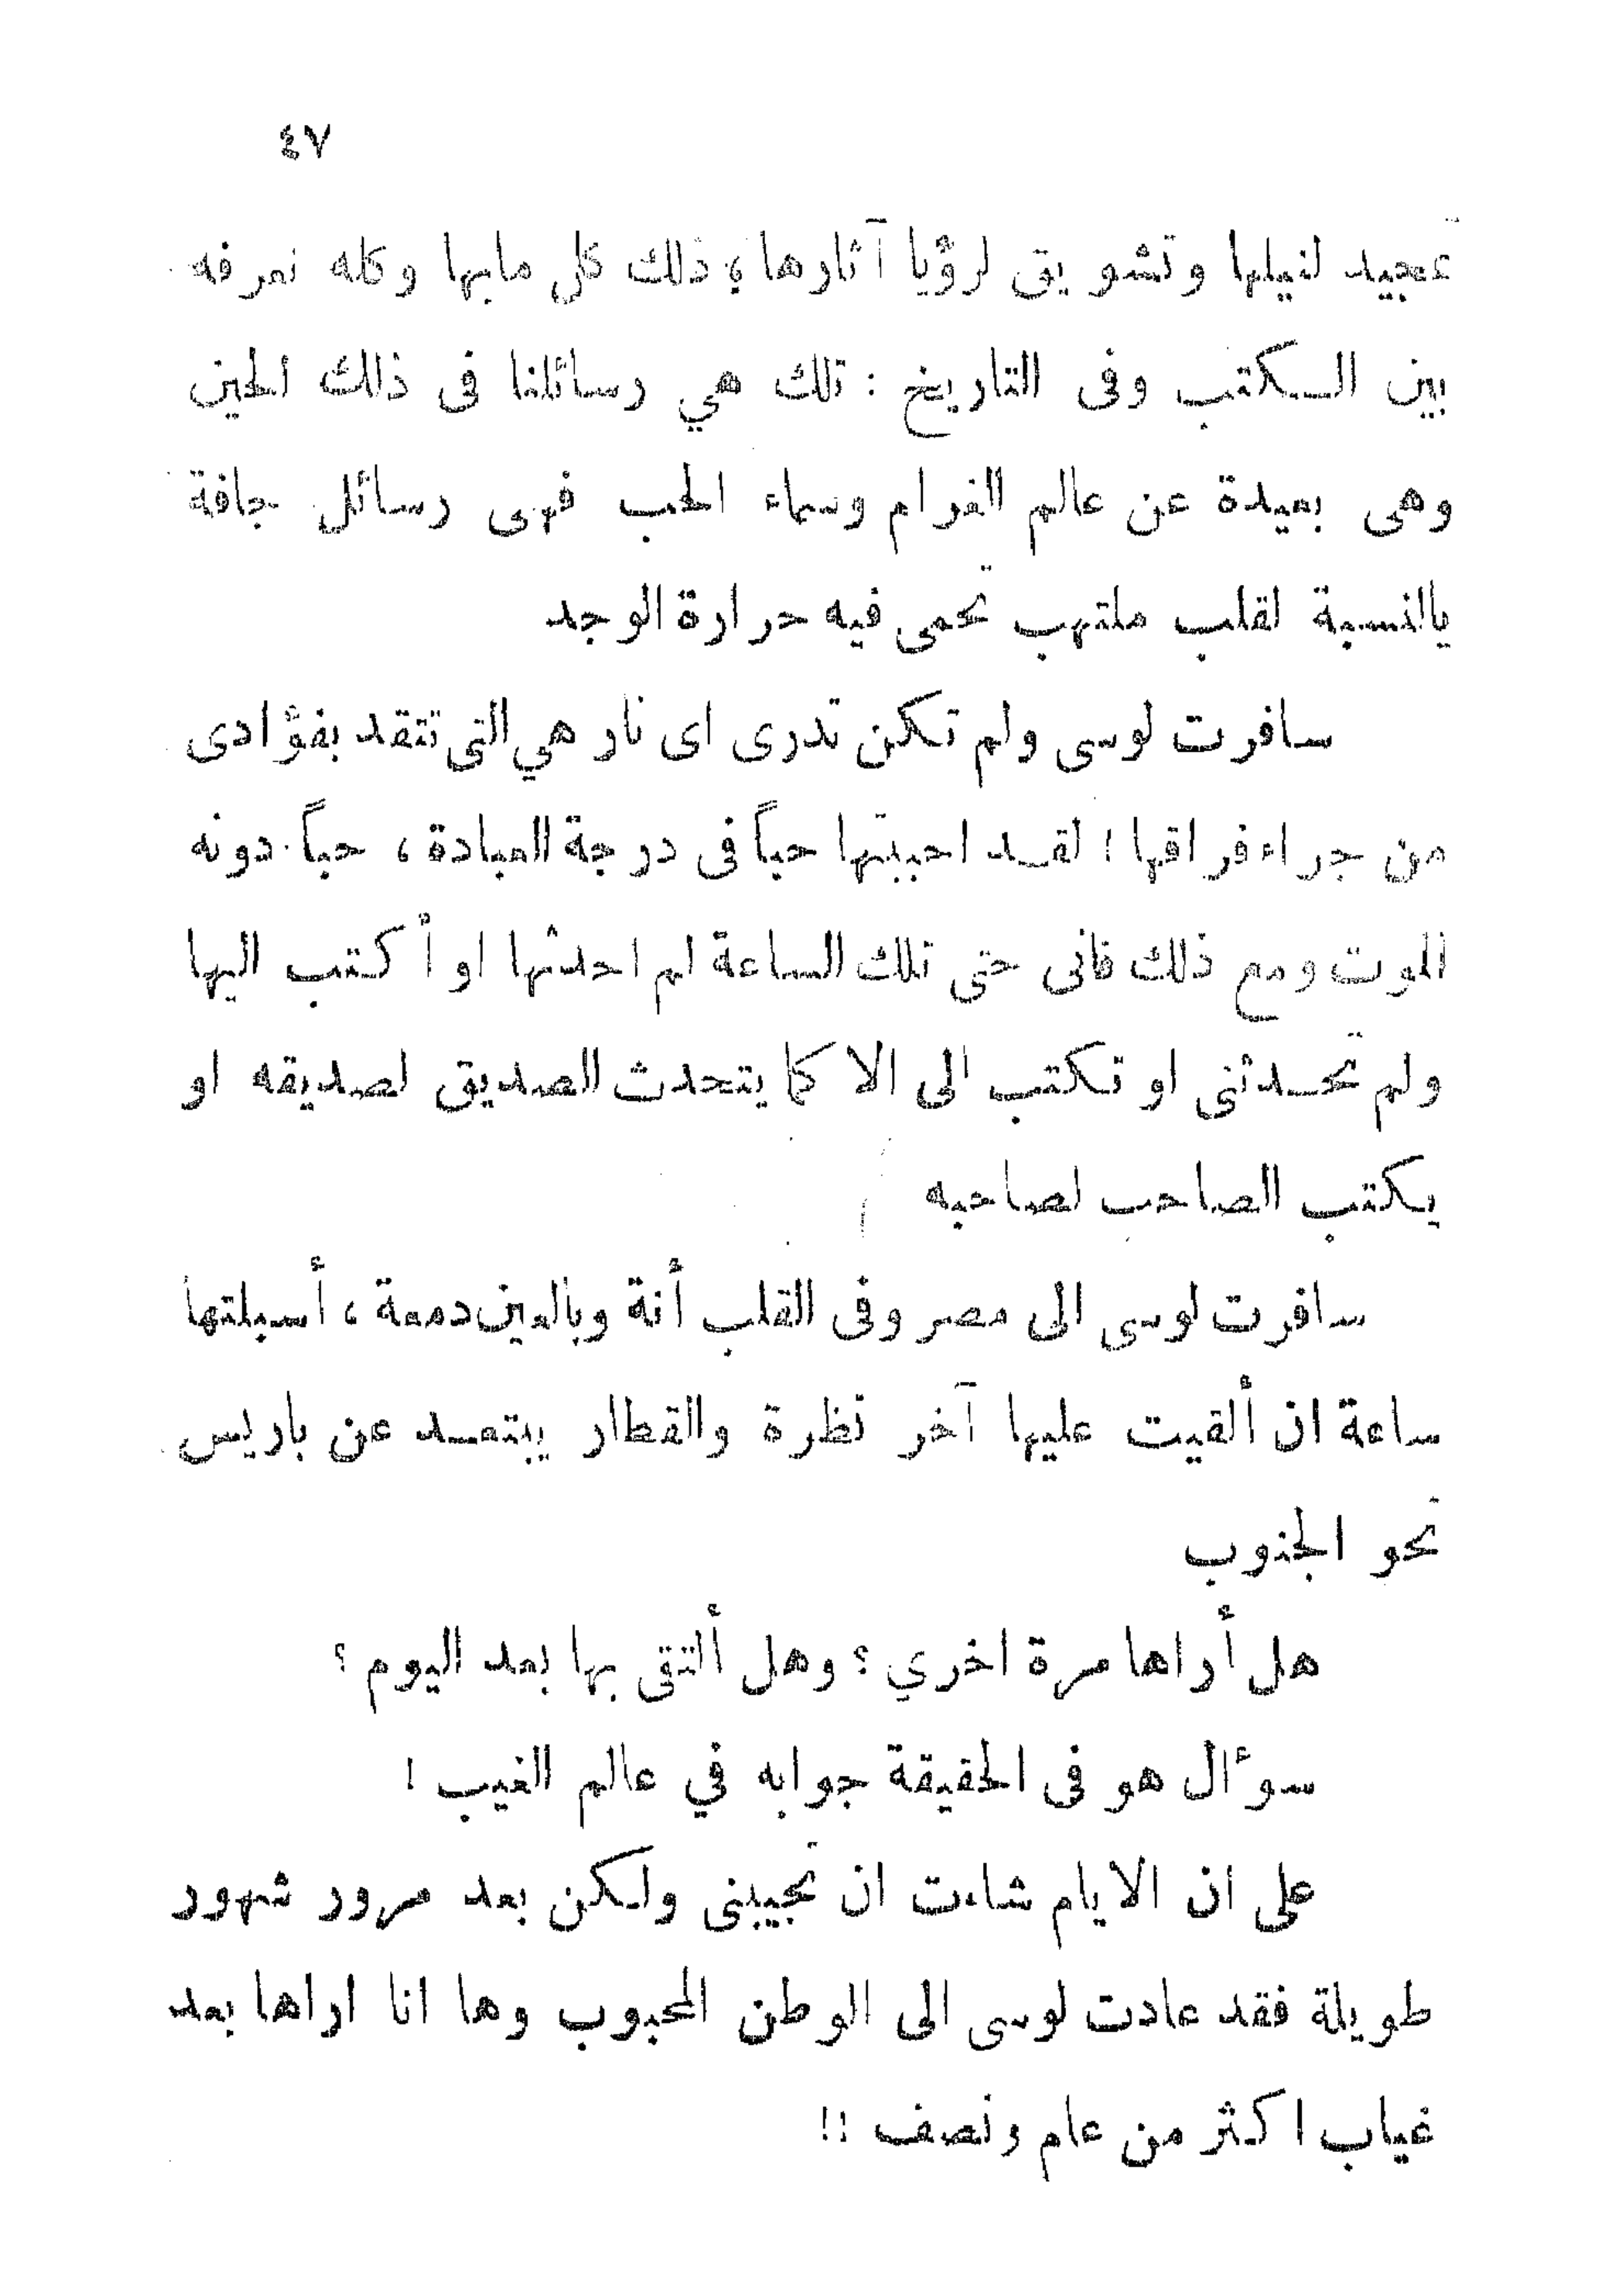 ٤٧
تمجيد لنيلها وتشويق لرؤيا آثارها، ذلك كل مابها وكله نعرفه
بين الكتب وفى التاريخ : تلك هي رسائلنا فى ذلك الحين
وهى بعيدة عن عالم الغرام وسماء الحب فهى رسائل جافة
بالنسبة لقلب ملتهب تحمى فيه حرارة الوجد
سافرت لوسى ولم تكن تدرى اى نار هي التى تتقد بفؤادى
من جراء فراقها ! لقد احببتها حباً فى درجة العبادة ، حباً دونه
الموت ومع ذلك فانى حتى تلك الساعة لم احدثها او أكتب اليها
ولم تحدثنى او تكتب الى الا كما يتحدث الصديق لصديقه او
يكتب الصاحب لصاحبه
سافرت لوسى الى مصر وفى القلب أنة وبالعين دمعة ، أسبلتها
ساعة ان ألقيت عليها آخر نظرة والقطار يبتعد عن باريس
نحو الجنوب
هل أراها مرة اخري ؟ وهل ألتقى بها بعد اليوم ؟
سؤال هو فى الحقيقة جوابه في عالم الغيب !
على ان الايام شاءت ان تجيبنى ولكن بعد مرور شهور
طويلة فقد عادت لوسى الى الوطن المحبوب وها انا اراها بعد
غياب اكثر من عام ونصف !!